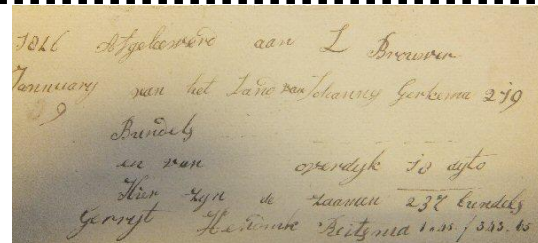 1826 Afgeleverd aan L Brouwer
Jannuary van het Land van Johannes Gerkema 219
9 Bundels
en van overdyk 18 dyto
Hier zyn de zaamen 237 bundels
Gerryt Hendrik Reitsma